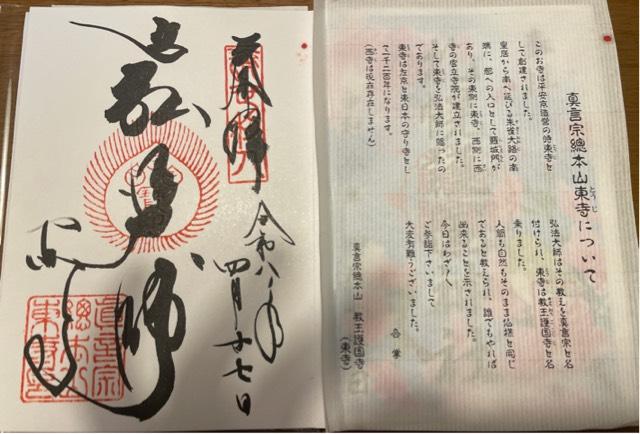 真言宗總本山東寺について
とうじ
このお寺は平安京造営の時東寺と
して創建されました。
皇居から南へ延びる朱雀大路の南
端に、都への入口として羅城門が
あり、その東側に東寺、西側に西
寺の官立寺院が建立されました。
そして東寺を弘法大師に賜ったの
であります。
東寺は左京と東日本の守り寺とし
て一千二百年になります。
(西寺は現在存在しません)
弘法大師はその教えを真言宗と名
付けられ、東寺は教王護国寺と名
乗りました。
人間も自然もそのまま仏様と同じ
であると教えられ、誰でもやれば
出来ることを示されました。
今日はわざ〱
ご参詣下さいまして
大変有難うございました。
合掌
真言宗總本山 教王護国寺
(東寺)
奉拝
令和八年
四月十七日
弘法大師
真言宗
總本山
東寺印